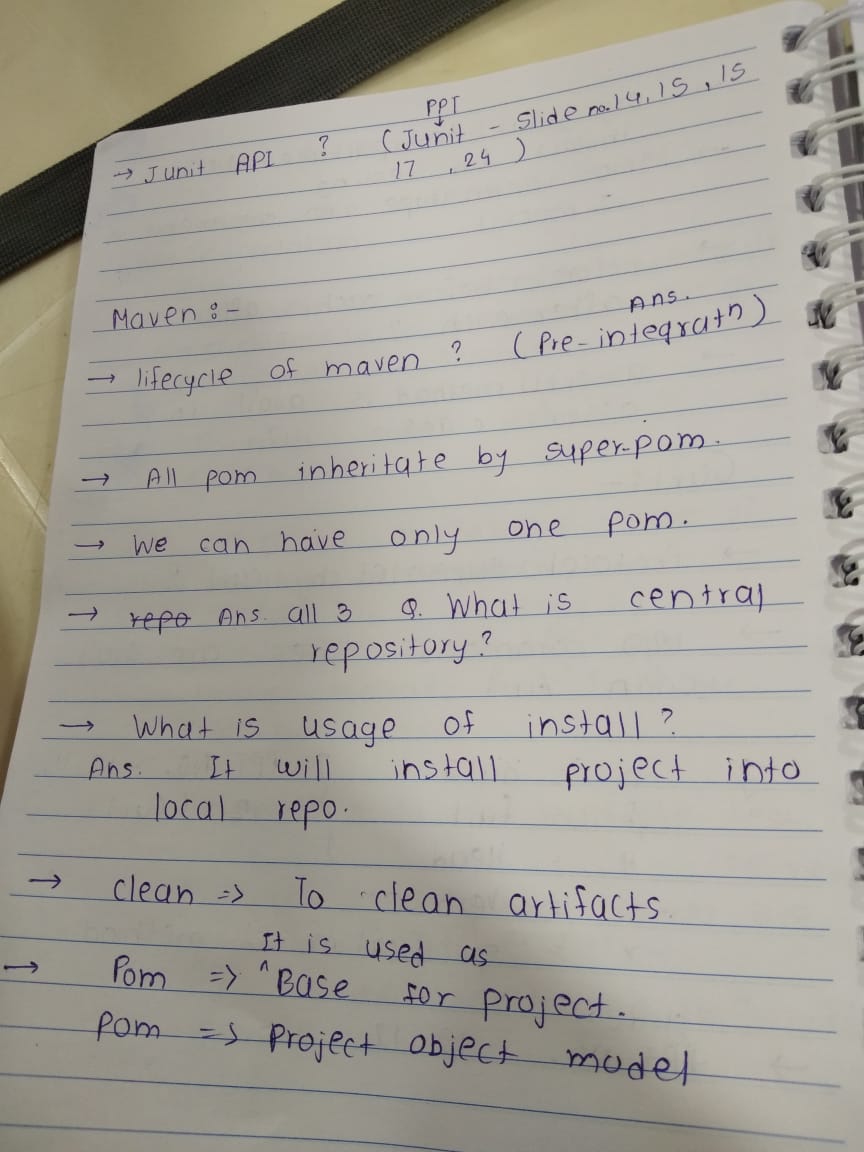 PPT
→ Junit API ? (Junit - Slide no. 14, 15, 15
17, 24)
Maven :-
Ans.
→ lifecycle of maven ? (Pre-integratn)
→ All pom inheritate by super-pom.
→ We can have only one pom.
→ repo Ans. all 3 Q. What is central
repository?
→ What is usage of install?
Ans. It will install project into
local repo.
→ clean => To clean artifacts.
It is used as
→ Pom => ^Base for project.
pom => project object model